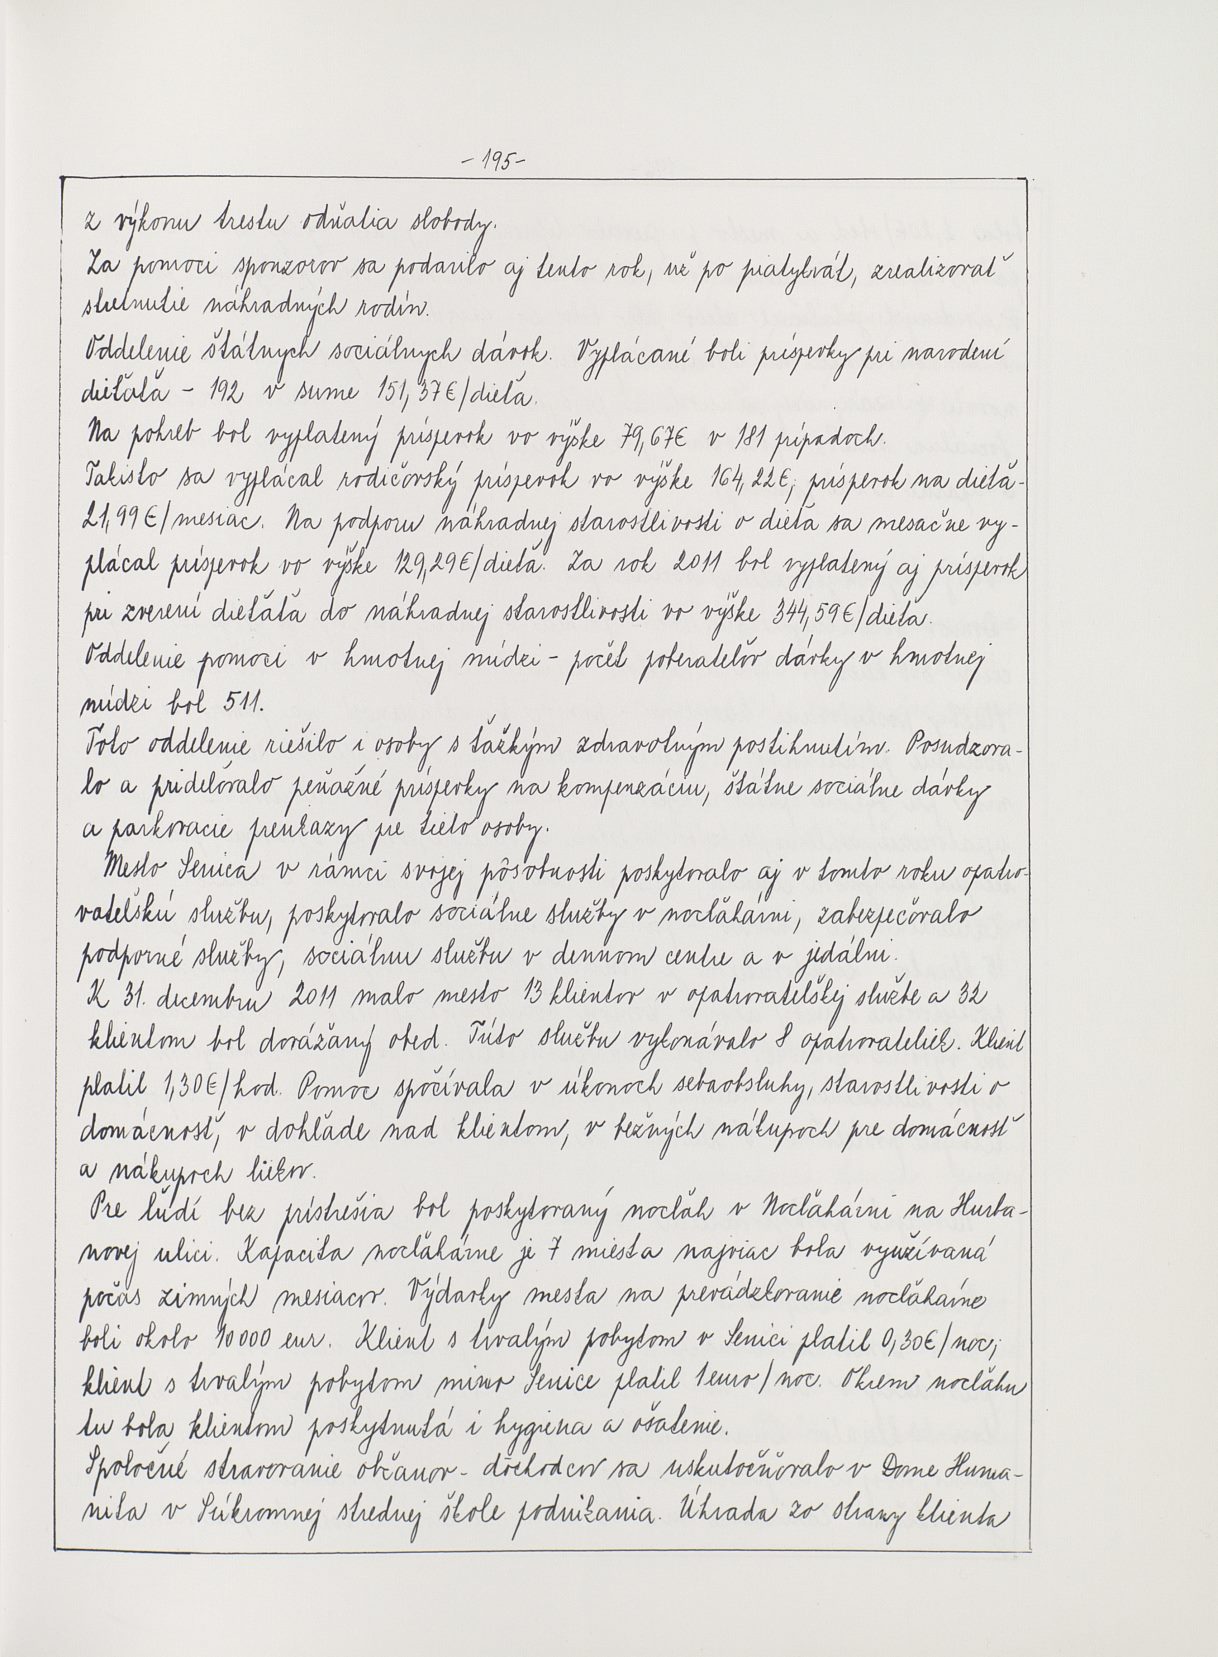 -195-
z výkonu trestu odňatia slobody.
Za pomoci sponzorov sa podarilo aj tento rok, už po piatykrát, zrealizovať
stretnutie náhradných rodín.
Oddelenie štátnych sociálnych dávok. Vyplácané boli príspevky pri narodení
dieťaťa - 192 v sume 151,37€/dieťa.
Na pohreb bol vyplatený príspevok vo výške 79,67€ v 181 prípadoch.
Takisto sa vyplácal rodičovský príspevok vo výške 164,22€, príspevok na dieťa-
21,99€/mesiac. Na podporu náhradnej starostlivosti o dieťa sa mesačne vy-
plácal príspevok vo výške 129,29€/dieťa. Za rok 2011 bol vyplatený aj príspevok
pri zverení dieťaťa do náhradnej starostlivosti vo výške 344,59€/dieťa.
Oddelenie pomoci v hmotnej núdzi - počet poberateľov dávky v hmotnej
núdzi bol 511.
Toto oddelenie riešilo i osoby s ťažkým zdravotným postihnutím. Posudzova-
lo a prideľovalo peňažné príspevky na kompenzáciu, štátne sociálne dávky
a parkovacie preukazy pre tieto osoby.
Mesto Senica v rámci svojej pôsobnosti poskytovalo aj v tomto roku opatro-
vateľskú službu, poskytovalo sociálne služby v nocľahárni, zabezpečovalo
podporné služby, sociálnu službu v dennom centre a v jedálni.
K 31. decembru 2011 malo mesto 13 klientov v opatrovateľskej službe a 32
klientom bol dovážaný obed. Túto službu vykonávalo 8 opatrovateliek. Klient
platil 1,30€/hod. Pomoc spočívala v úkonoch sebaobsluhy, starostlivosti o
domácnosť, v dohľade nad klientom, v bežných nákupoch pre domácnosť
a nákupoch liekov.
Pre ľudí bez prístrešia bol poskytovaný nocľah v Nocľahárni na Hurba-
novej ulici. Kapacita nocľahárne je 7 miesta najviac bola využívaná
počas zimných mesiacov. Výdavky mesta na prevádzkovanie nocľahárne
boli okolo 10 000 eur. Klient s trvalým pobytom v Senici platil 0,30€/noc,
klient s trvalým pobytom mimo Senice platil 1 euro/noc. Okrem nocľahu
tu bola klientom poskytnutá i hygiena a ošatenie.
Spoločné stravovanie občanov - dôchodcov sa uskutočňovalo v Dome Huma-
nita v Súkromnej strednej škole podnikania. Úhrada zo strany klienta